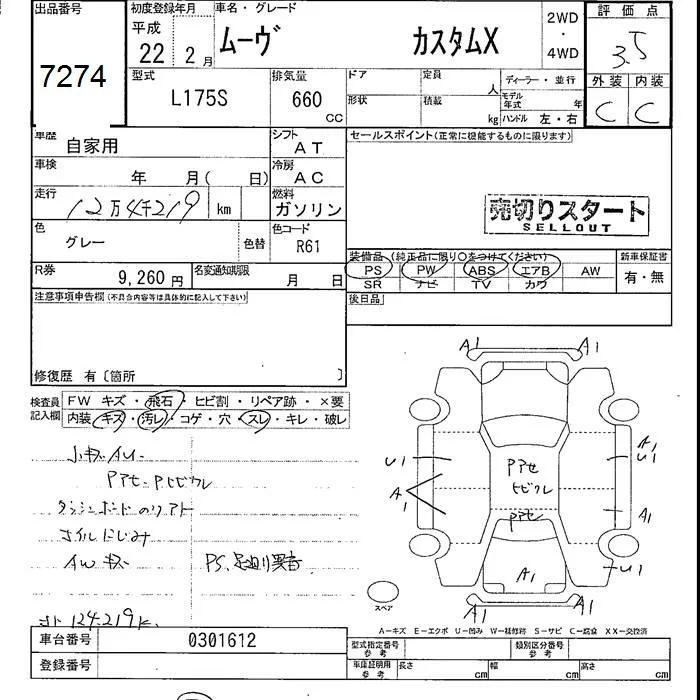 出品番号 初度登録年月 車名・グレード 評価点
7274 平成 22 2月 ムーヴ カスタムX 2WD・4WD 3.5
型式 L175S 排気量 660 CC ドア 定員 人 ディーラー・並行 外装 内装
形状 積載 kg モデル年式 年 ハンドル 左・右 C C
車歴 自家用 シフト AT セールスポイント(正常に機能するものに限ります)
車検 年 月( 日) 冷房 AC
走行 12万4千219 km 燃料 ガソリン
売切りスタート
SELLOUT
色 グレー 色替 色コード R61
装備品(純正品に限り○をつけてください) 新車保証書
PS PW ABS エアB AW 有・無
SR ナビ TV カワ
R券 9,260円 名変通知期限 月 日
後日品
注意事項申告欄(不具合内容等は具体的に記入して下さい)
修復歴 有〔箇所 〕
検査員記入欄
FW キズ・飛石・ヒビ割・リペア跡・×要
内装・キズ・汚レ・コゲ・穴・スレ・キレ・破レ
小キズ
ダッシュボードのリアト
オイルにじみ
AWキズ PS、足廻り異音
124219K
A1 A1
U1 A1 U1
A1 A1
U1
A1
A1 A1
スペア
A－キズ E－エクボ U－凹み W－補修跡 S－サビ C－腐食 XX－交換済
車台番号 0301612
登録番号
型式指定番号 参考 類別区分番号 参考
車庫証明用 参考 長さ cm 幅 cm 高さ cm